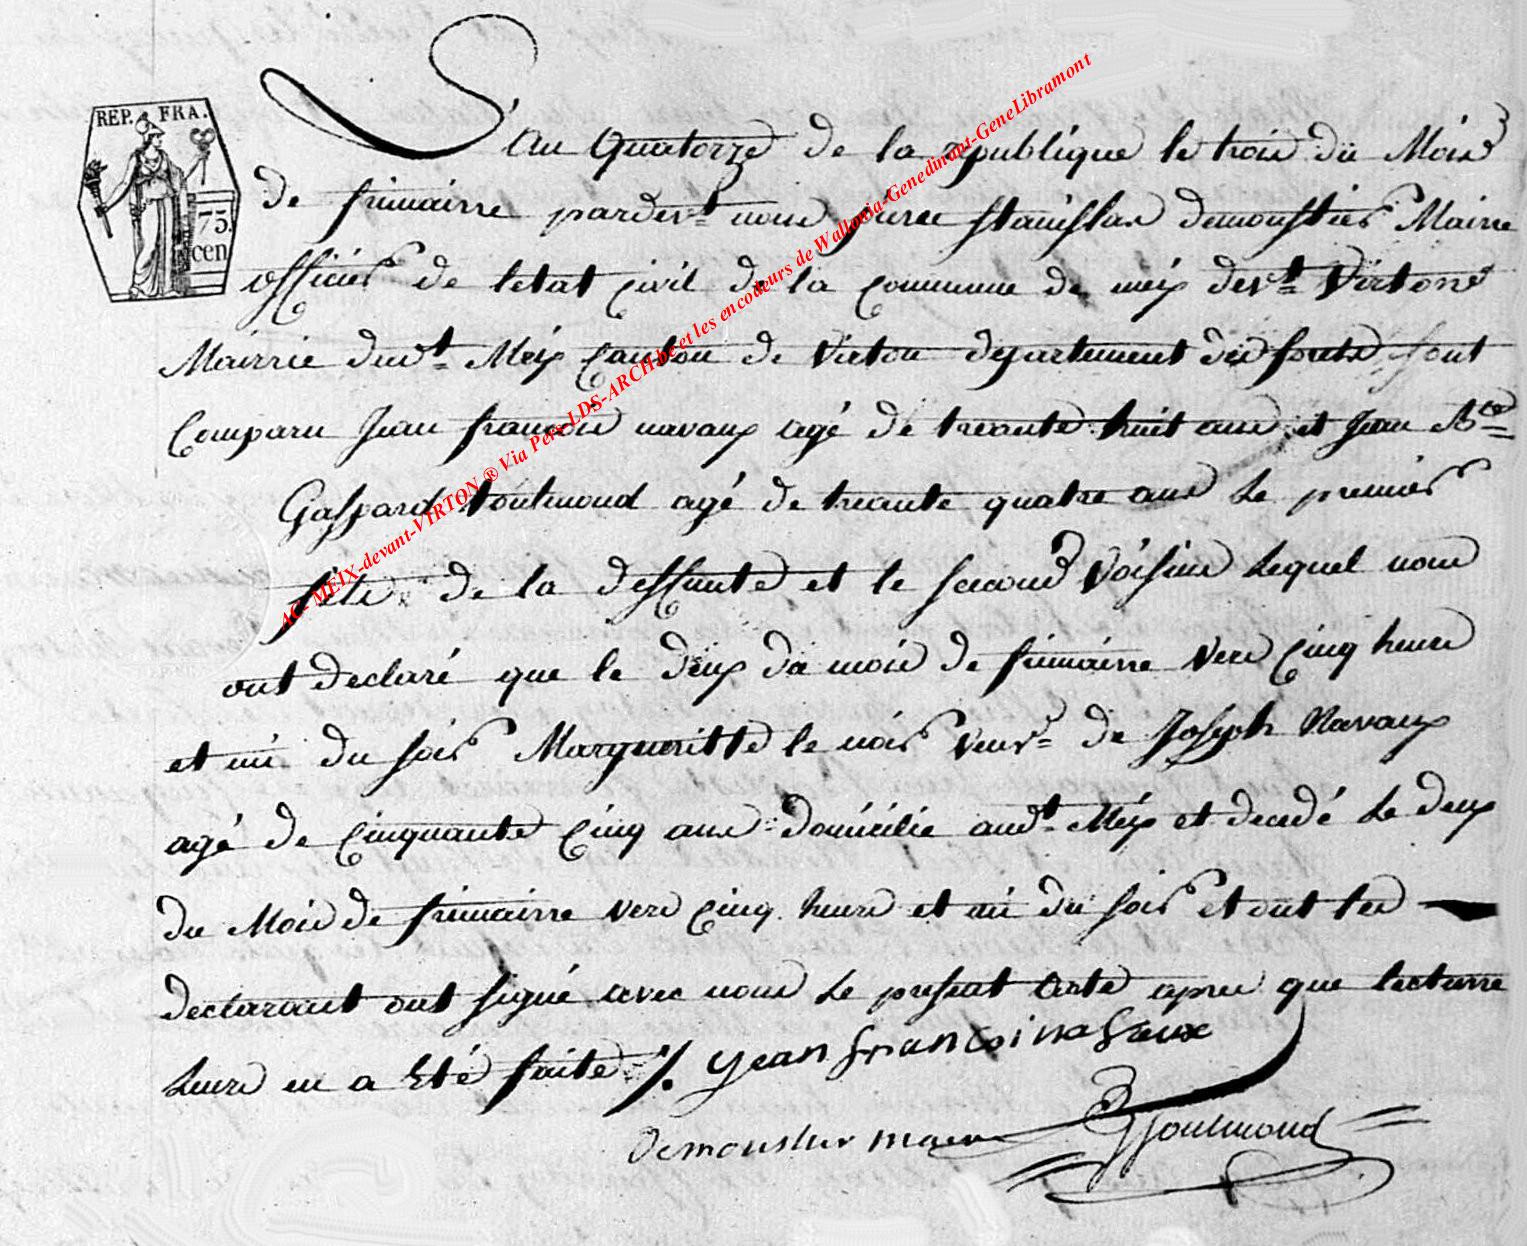 REP. FRA.
75.
cen.
L'an Quatorze de la republique le trois du Mois
de frimairre pardevt nous pierre Stanislas demoustier Mairre
officier de l'etat civil de la commune de meix devt Virton
Mairrie devt Meix Canton de Virton departement des forets sont
Comparu Jean françois navaux agé de trecente huit ans et Jean Bte
Gaspard toulmond agé de trecente quatre ans le premier
fils de la deffunte et le second Voisins lequel nous
ont declaré que le deux du mois de frimairre vers cinq heure
et mi du soir Margueritte le noir veuve de Joseph Navaux
agé de cinquante cinq ans domicilié audt Meix et decedé le deux
du Mois de frimairre vers cinq heure et mi du soir et ont les
declarant ont signé avec nous le present acte apres que lecturre
leure en a Eté faite ./. jean francoi nafaux
demoustier maire JGtoulmond
AC-MEIX-devant-VIRTON ® Via Pers-LDS-ARCH-be et les encodeurs de Wallonia-Genedinant-GeneLibramont